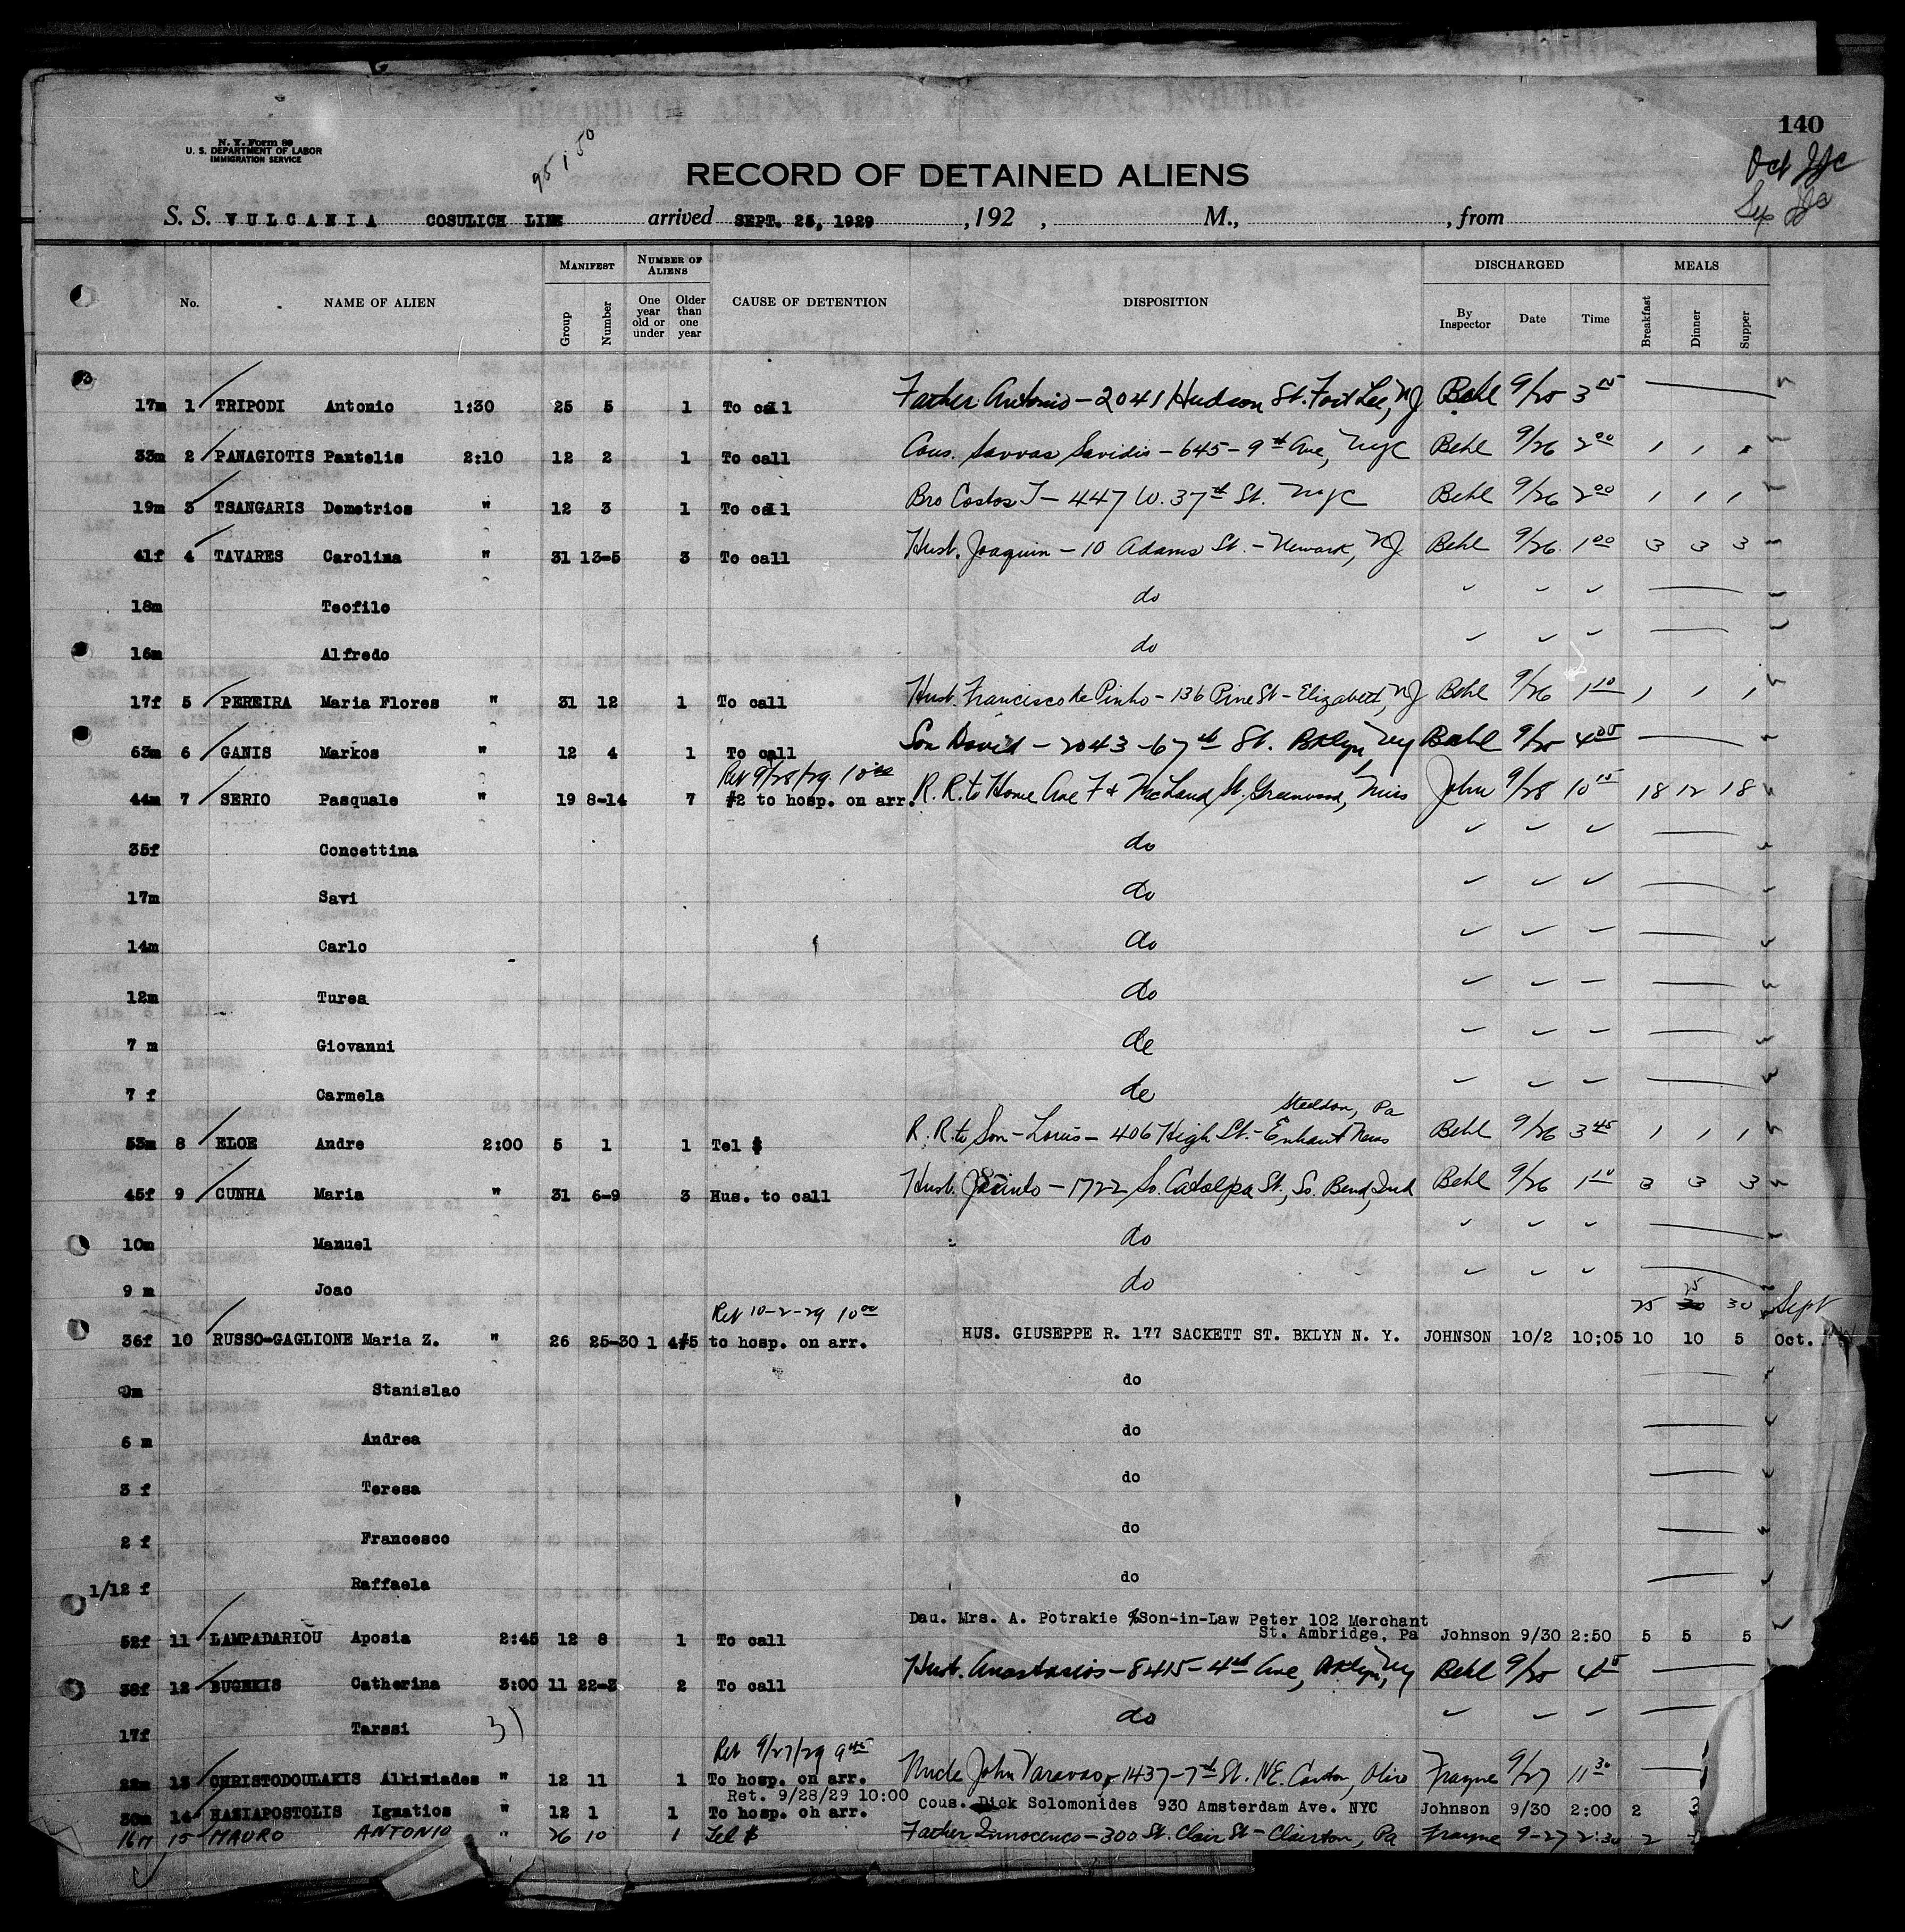 140
N. Y. Form 89
U. S. DEPARTMENT OF LABOR
IMMIGRATION SERVICE
95 / 50
RECORD OF DETAINED ALIENS
Oct
Sep
S. S. VULCANIA COSULICH LINE arrived SEPT. 25, 1929 , 192 , M., , from
MANIFEST NUMBER OF ALIENS DISCHARGED MEALS
No. NAME OF ALIEN Group Number One year old or under Older than one year CAUSE OF DETENTION DISPOSITION By Inspector Date Time Breakfast Dinner Supper
17m 1 TRIPODI Antonio 1:30 25 5 1 To call Father Antonio - 2041 Hudson St. Fort Lee, NJ Behl 9/25 3
33m 2 PANAGIOTIS Pantelis 2:10 12 2 1 To call Cous. Savvas Savidis - 645 - 9th Ave, NYC Behl 9/26 2 00 1 1 1
19m 3 TSANGARIS Demetrios " 12 3 1 To call Bro Costos T - 447 W. 37th St. NYC Behl 9/26 2 00 1 1 1
41f 4 TAVARES Carolina " 31 13-5 3 To call Husb. Joaquin - 10 Adams St. - Newark, NJ Behl 9/26 1 00 3 3 3
18m Teofilo do
16m Alfredo do
17f 5 PEREIRA Maria Flores " 31 12 1 To call Husb. Francisco de Pinho - 136 Pine St - Elizabeth, NJ Behl 9/26 1 10 1 1 1
63m 6 GANIS Markos " 12 4 1 To call Son David - 2043 - 67th St. Bklyn, NY Behl 9/25 4 05
Ret 9/28/29 10 00
44m 7 SERIO Pasquale " 19 8-14 7 #2 to hosp. on arr. R.R. to Home Ave F & St. Greenwood, Miss John 9/28 10 15 18 12 18
35f Concettina do
17m Savi do
14m Carlo do
12m Turea do
7 m Giovanni do
7 f Carmela do
Steelton, Pa
53m 8 ELOE Andre 2:00 5 1 1 Tel $ R.R. to Son - Louis - 406 High St. - Enhaut Behl 9/26 3 45 1 1 1
45f 9 CUNHA Maria " 31 6-9 3 Hus. to call Husb. Jacinto - 1722 So. Catalpa St., So. Bend, Ind Behl 9/26 1 10 3 3 3
10m Manuel do
9 m Joao do
Ret 10-2-29 10 00 25 25 30 Sept
36f 10 RUSSO-GAGLIONE Maria Z. " 26 25-30 1 4#5 to hosp. on arr. HUS. GIUSEPPE R. 177 SACKETT ST. BKLYN N. Y. JOHNSON 10/2 10;05 10 10 5 Oct.
9m Stanislao do
6 m Andrea do
3 f Teresa do
2 f Francesco do
1/12 f Raffaela do
Dau. Mrs. A. Potrakie &Son-in-Law Peter 102 Merchant
52f 11 LAMPADARIOU Aposia 2:45 12 8 1 To call St. Ambridge, Pa Johnson 9/30 2:50 5 5 5
38f 12 BUGEKIS Catherina 3:00 11 22-3 2 To call Husb. Anastasios - 8415 - 4th Ave, Bklyn, NY Behl 9/25 4
17f Tarssi 3) do
Ret 9/27/29 9 45
22m 13 CHRISTODOULAKIS Alkiviades " 12 11 1 To hosp. on arr. Uncle John Varavas, 1437 - 7th St. NE. Canton, Ohio Frayne 9/27 11 30
Ret. 9/28/29 10:00
30m 14 HAZIAPOSTOLIS Ignatios " 12 1 1 To hosp. on arr. Cous. Dick Solomonides 930 Amsterdam Ave. NYC Johnson 9/30 2:00 2
16m 15 MAURO ANTONIO " 26 10 1 Tel $ Father Innocenco - 300 St. Clair St - Clairton, Pa Frayne 9-27 2:30 2